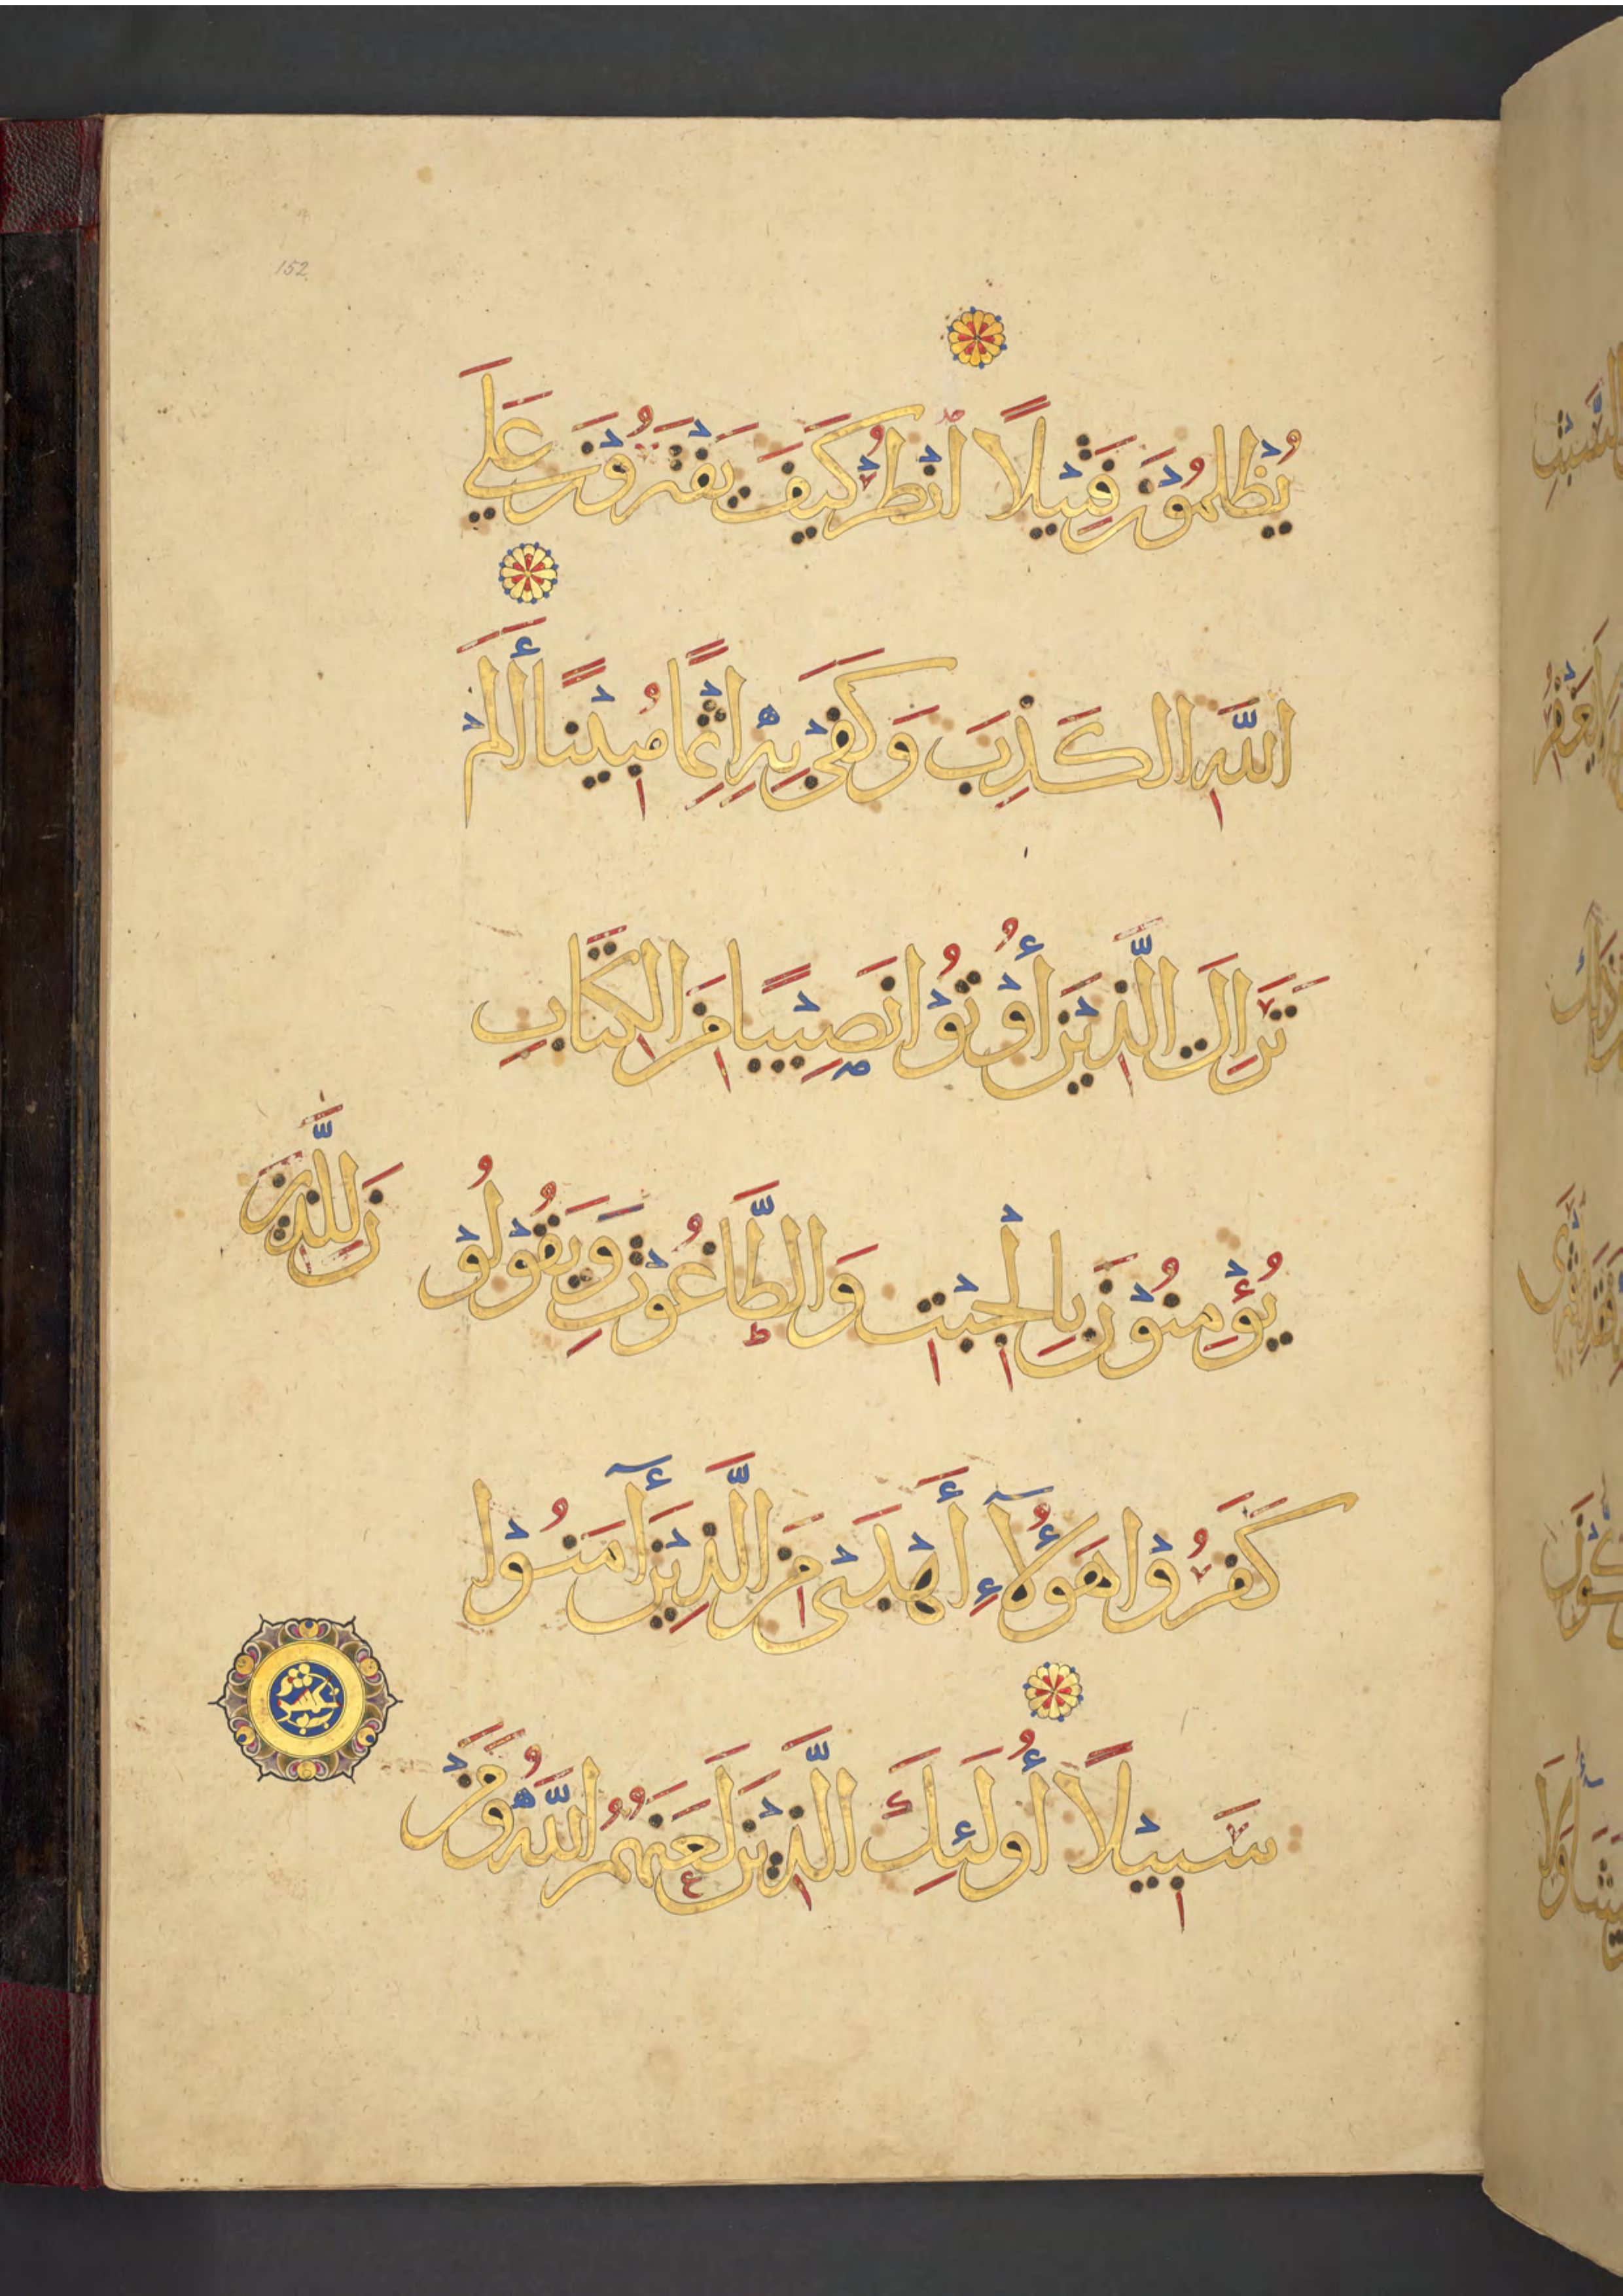 152
يُظْلَمُوْنَ فَتِيْلًا انْظُرْ كَيْفَ يَفْتَرُوْنَ عَلَى
اللَّهِ الْكَذِبَ وَكَفَىْ بِهِ اِثْمًا مُبِيْنًا أَلَمْ
تَرَ اِلَى الَّذِيْنَ أُوْتُوْا نَصِيْبًا مِنَ الْكِتَابِ
يُؤْمِنُوْنَ بِالْجِبْتِ وَالطَّاغُوْتِ وَيَقُوْلُوْ
نَ لِلَّذِيْنَ
كَفَرُوْا هَؤُلَآءِ أَهْدَىْ مِنَ الَّذِيْنَ أٓمَنُوْا
سَبِيْلًا أُولَئِكَ الَّذِيْنَ لَعَنَهُمُ اللَّهُ وَمَنْ